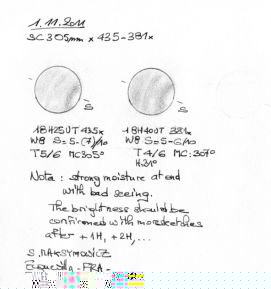 1.11.2011
SC 305mm x 435-381x
S
S
18H25UT 435x
W8 S=5-(7)/10
T5/6 MC305°
18H40UT 381x
W8 S=5-6/10
T4/6 MC:307°
H:31°
Nota : strong moisture at end
with bad seeing.
The brightness should be
confirmed with more sketches
after +1H, +2H,...
S.MAKSYMOWICZ
-FRA-